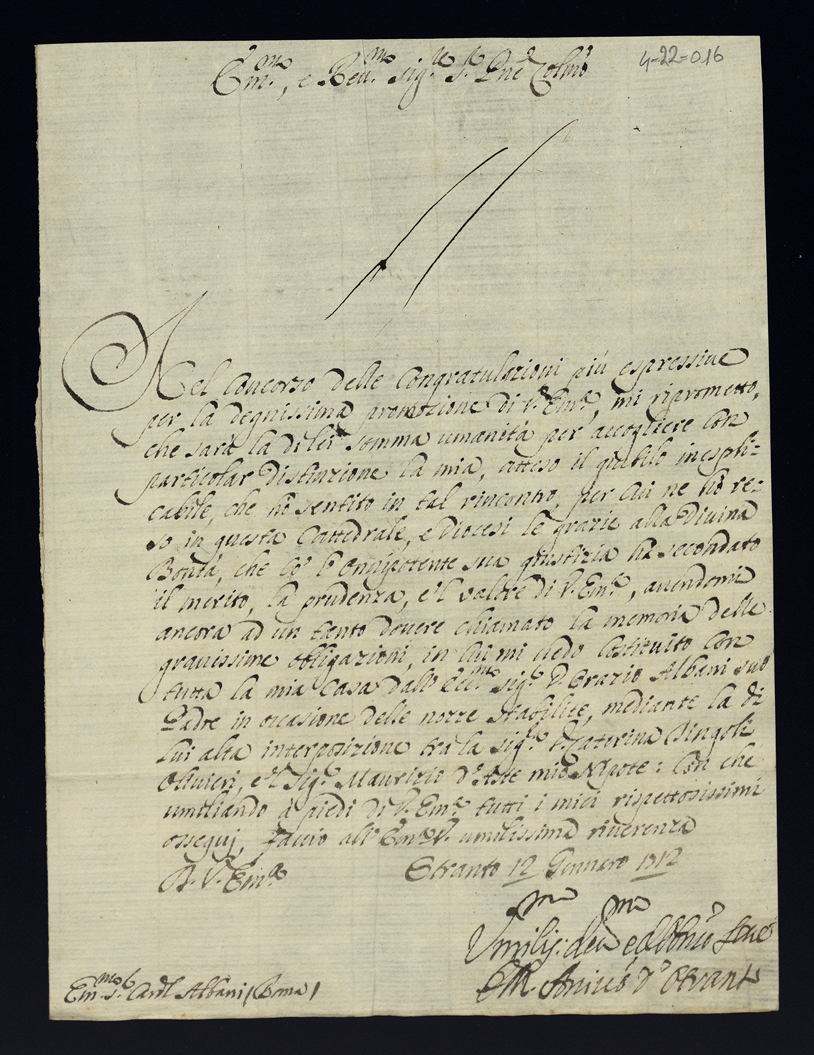 4-22-016
Em.mo, e Reu.mo Sig.re S.r Pne Colmo
Nel concorso delle congratulazioni più espressiue
per la degnissima promozione di V. Em.a, mi riprometto,
che sarà la di lei somma umanità per accogliere con
particolar distinzione la mia, atteso il giubilo inespli=
cabile, che hò sentito in tal rincontro, per cui ne hò re=
so in questa Cattedrale, e Diocesi le grazie alla Diuina
Bontà, che l'Onnipotente sua giustizia hà secondato
il merito, la prudenza, e'l valore di V. Em.a, auendomi
ancora ad un tanto douere chiamato la memoria delle
grauissime obligazioni, in cui mi uedo costituito con
tutta la mia Casa dall' Ecc.mo Sig.r D. Orazio Albani suo
Padre in occasione delle nozze stabilite, mediante la di
lui alta interposizione tra la Sig.ra Caterina Bingoli
Oliuieri, e'l Sig.r Maurizio d'Aste mio Nipote: Con che
umiliando à piedi di V. Em.a tutti i miei rispettosissimi
ossequj, faccio all' Em.a V. umilissima riuerenza
D. V. Em.a
Otranto 12 Gennaro 1712
Umilis.mo deu.mo ed obl.mo
d'Otranto
Em.mo S.r Card. Albani (Roma)